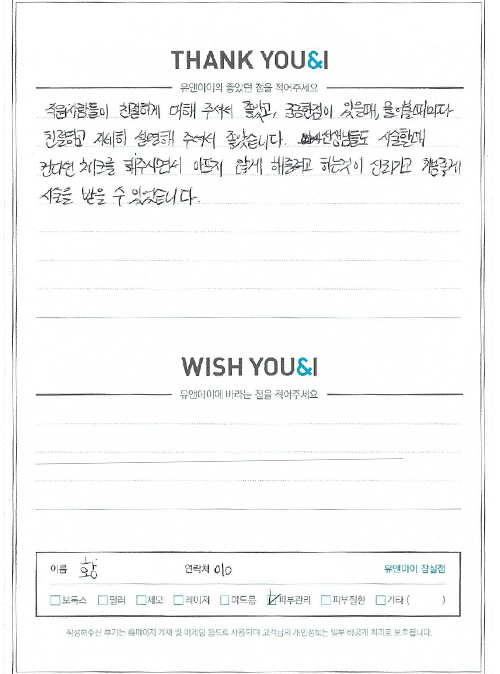 THANK YOU&I
유앤아이의 좋았던 점을 적어주세요
직원사람들이 친절하게 대해 주셔서 좋았고, 궁금한점이 있을때, 물어볼때마다
친절하고 자세히 설명해 주셔서 좋았습니다. 선생님들도 시술할때
컨디션 체크를 해주시면서 아프지 않게 해줄려고 하는것이 신뢰가고 기분좋게
시술을 받을 수 있었습니다.
WISH YOU&I
유앤아이에 바라는 점을 적어주세요
이름 황 연락처 010 유앤아이 잠실점
보톡스 필러 제모 레이저 여드름 피부관리 피부질환 기타 ( )
작성해주신 후기는 홈페이지 게재 및 마케팅 용도로 사용되며 고객님의 개인정보는 일부 비공개 처리로 보호됩니다.